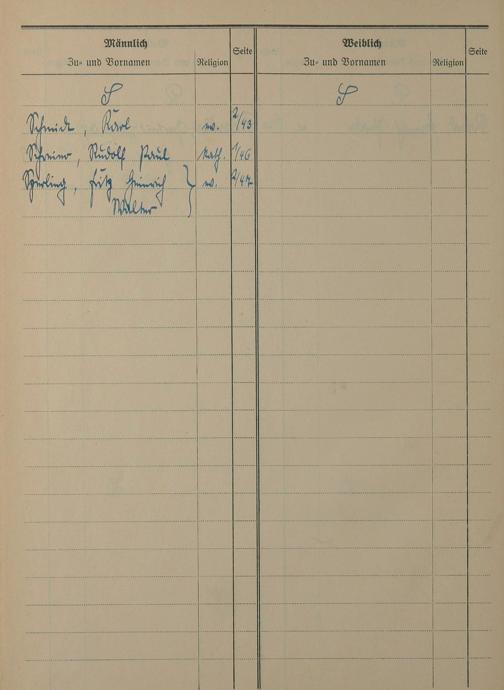 Männlich
Zu- und Vornamen Religion Seite
S
Schmidt, Karl ev. 2/43
Schreiner, Rudolf Paul kath. 1/46
Sperling, Fritz Heinrich ev. 2/47
Walter
Weiblich
Zu- und Vornamen Religion Seite
S